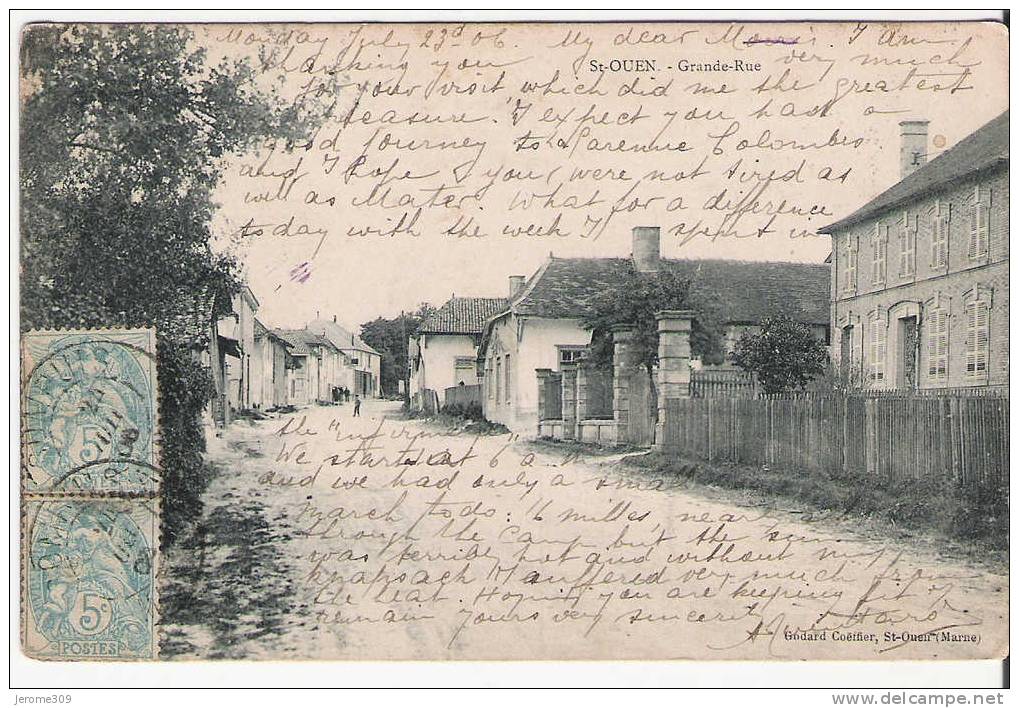 Monday July 23d 06. My dear Morris. I am
thanking you very much
St-OUEN. - Grande-Rue
for your visit, which did me the greatest
pleasure. I expect you had a
good journey to La Garenne Colombes
and I hope you were not tired as
well as Mater. What for a difference
today with the week I spent in
the "infirmerie"
We started at 6 a.m
and we had only a small
march to do: 16 milles, near
through the camp but the sun
was terrible hot and without my
knapsack I suffered very much from
the heat. Hoping you are keeping fit I
remain yours very sincerely
Godard Coëffier, St-Ouen (Marne)
5c
POSTES
5c
POSTES
jerome309
www.delcampe.net